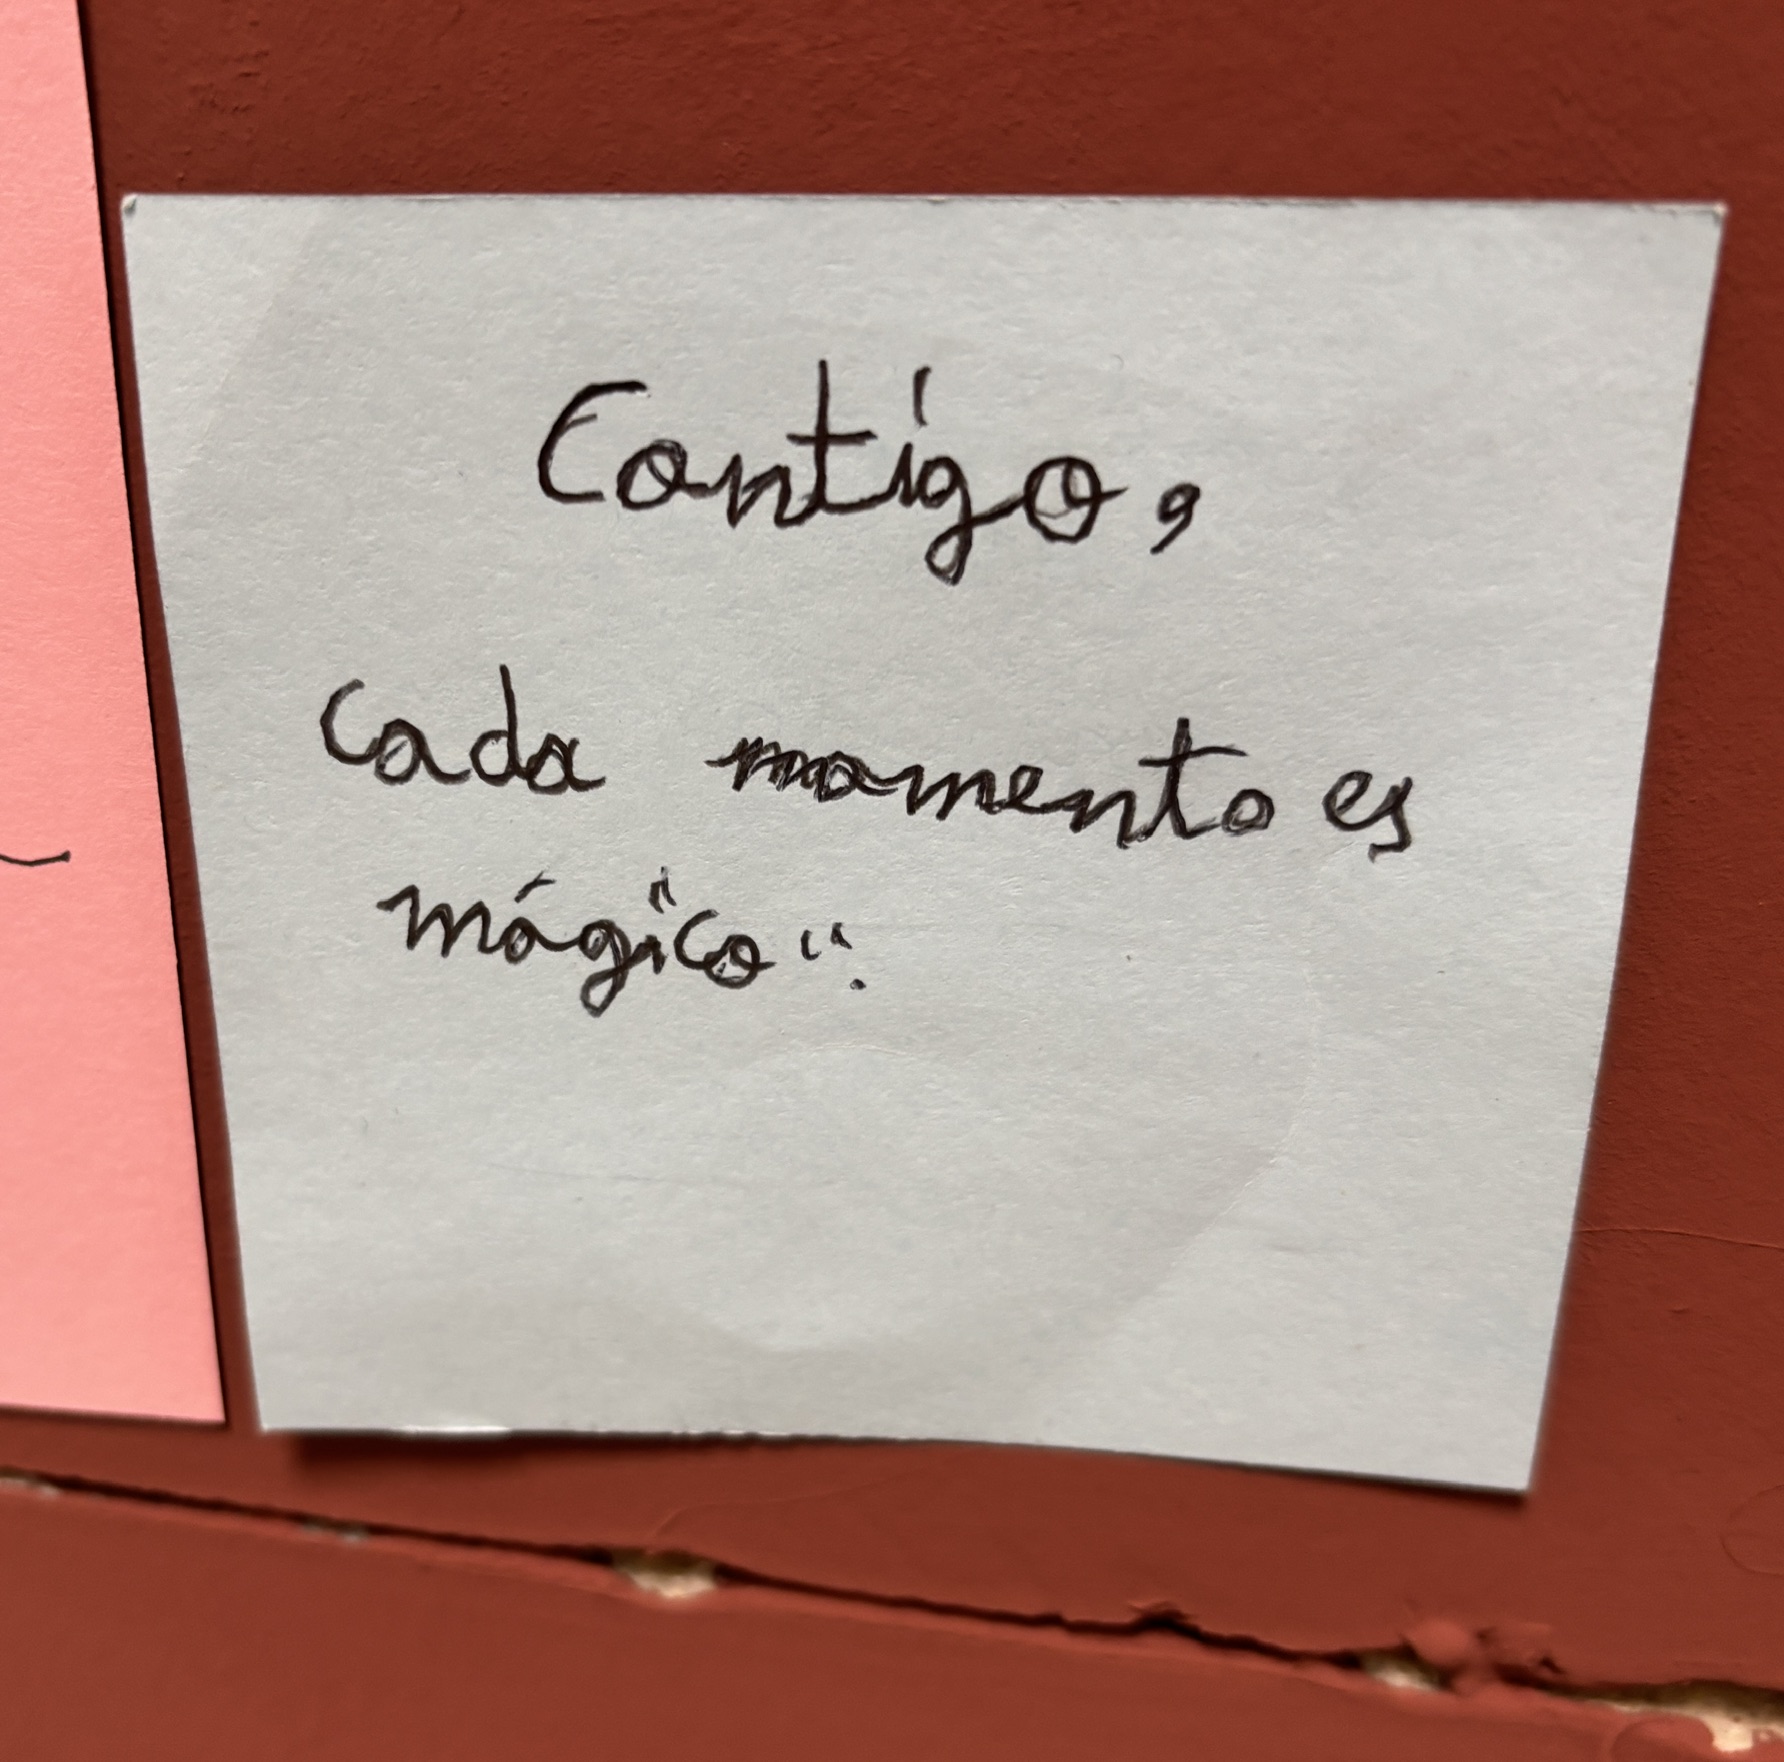 Contigo,
cada momento es
mágico".